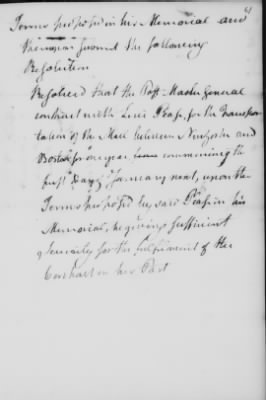 61
Terms proposed in his Memorial and
thereupon formed the following
Resolution
Resolved that the Post-Master General
contract with Levi Pease, for the Transpor
tation of the Mail between New York and
Boston for one year commencing the
first Day of January next, upon the
Terms proposed by said Pease in his
Memorial, he giving sufficient
Security for the fulfilment of the
Contract on his Part